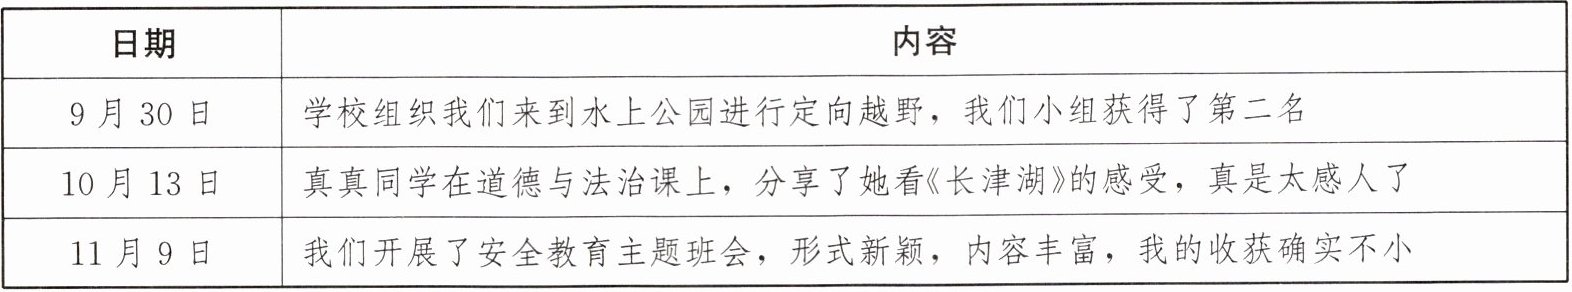 日期 内容
9月30日 学校组织我们来到水上公园进行定向越野，我们小组获得了第二名
10月13日 真真同学在道德与法治课上，分享了她看《长津湖》的感受，真是太感人了
11月9日 我们开展了安全教育主题班会，形式新颖，内容丰富，我的收获确实不小